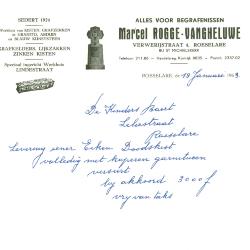 SEDERT 1924
Werken van KISTEN, GRAFZERKEN
in GRANITO, ARDUIN
en BLAUW KUNSTSTEEN
GRAFKELDERS, LIJKZAKKEN
ZINKEN KISTEN
Speciaal ingericht Werkhuis
LINDESTRAAT
ALLES VOOR BEGRAFENISSEN
Marcel ROGGE-VANGHELUWE
VERWERIJSTRAAT 4, ROESELARE
BIJ ST MICHIELSKERK
Telefoon 211.86 — Handelsreg. Kortrijk
ROESELARE, de 19 Januarie
De Kinders Baert
Leliestraat
Roeselare
Levering eener Eiken Doodskist
volledig met koperen garnituren
bij akkoord 3000 f
vrij van taks